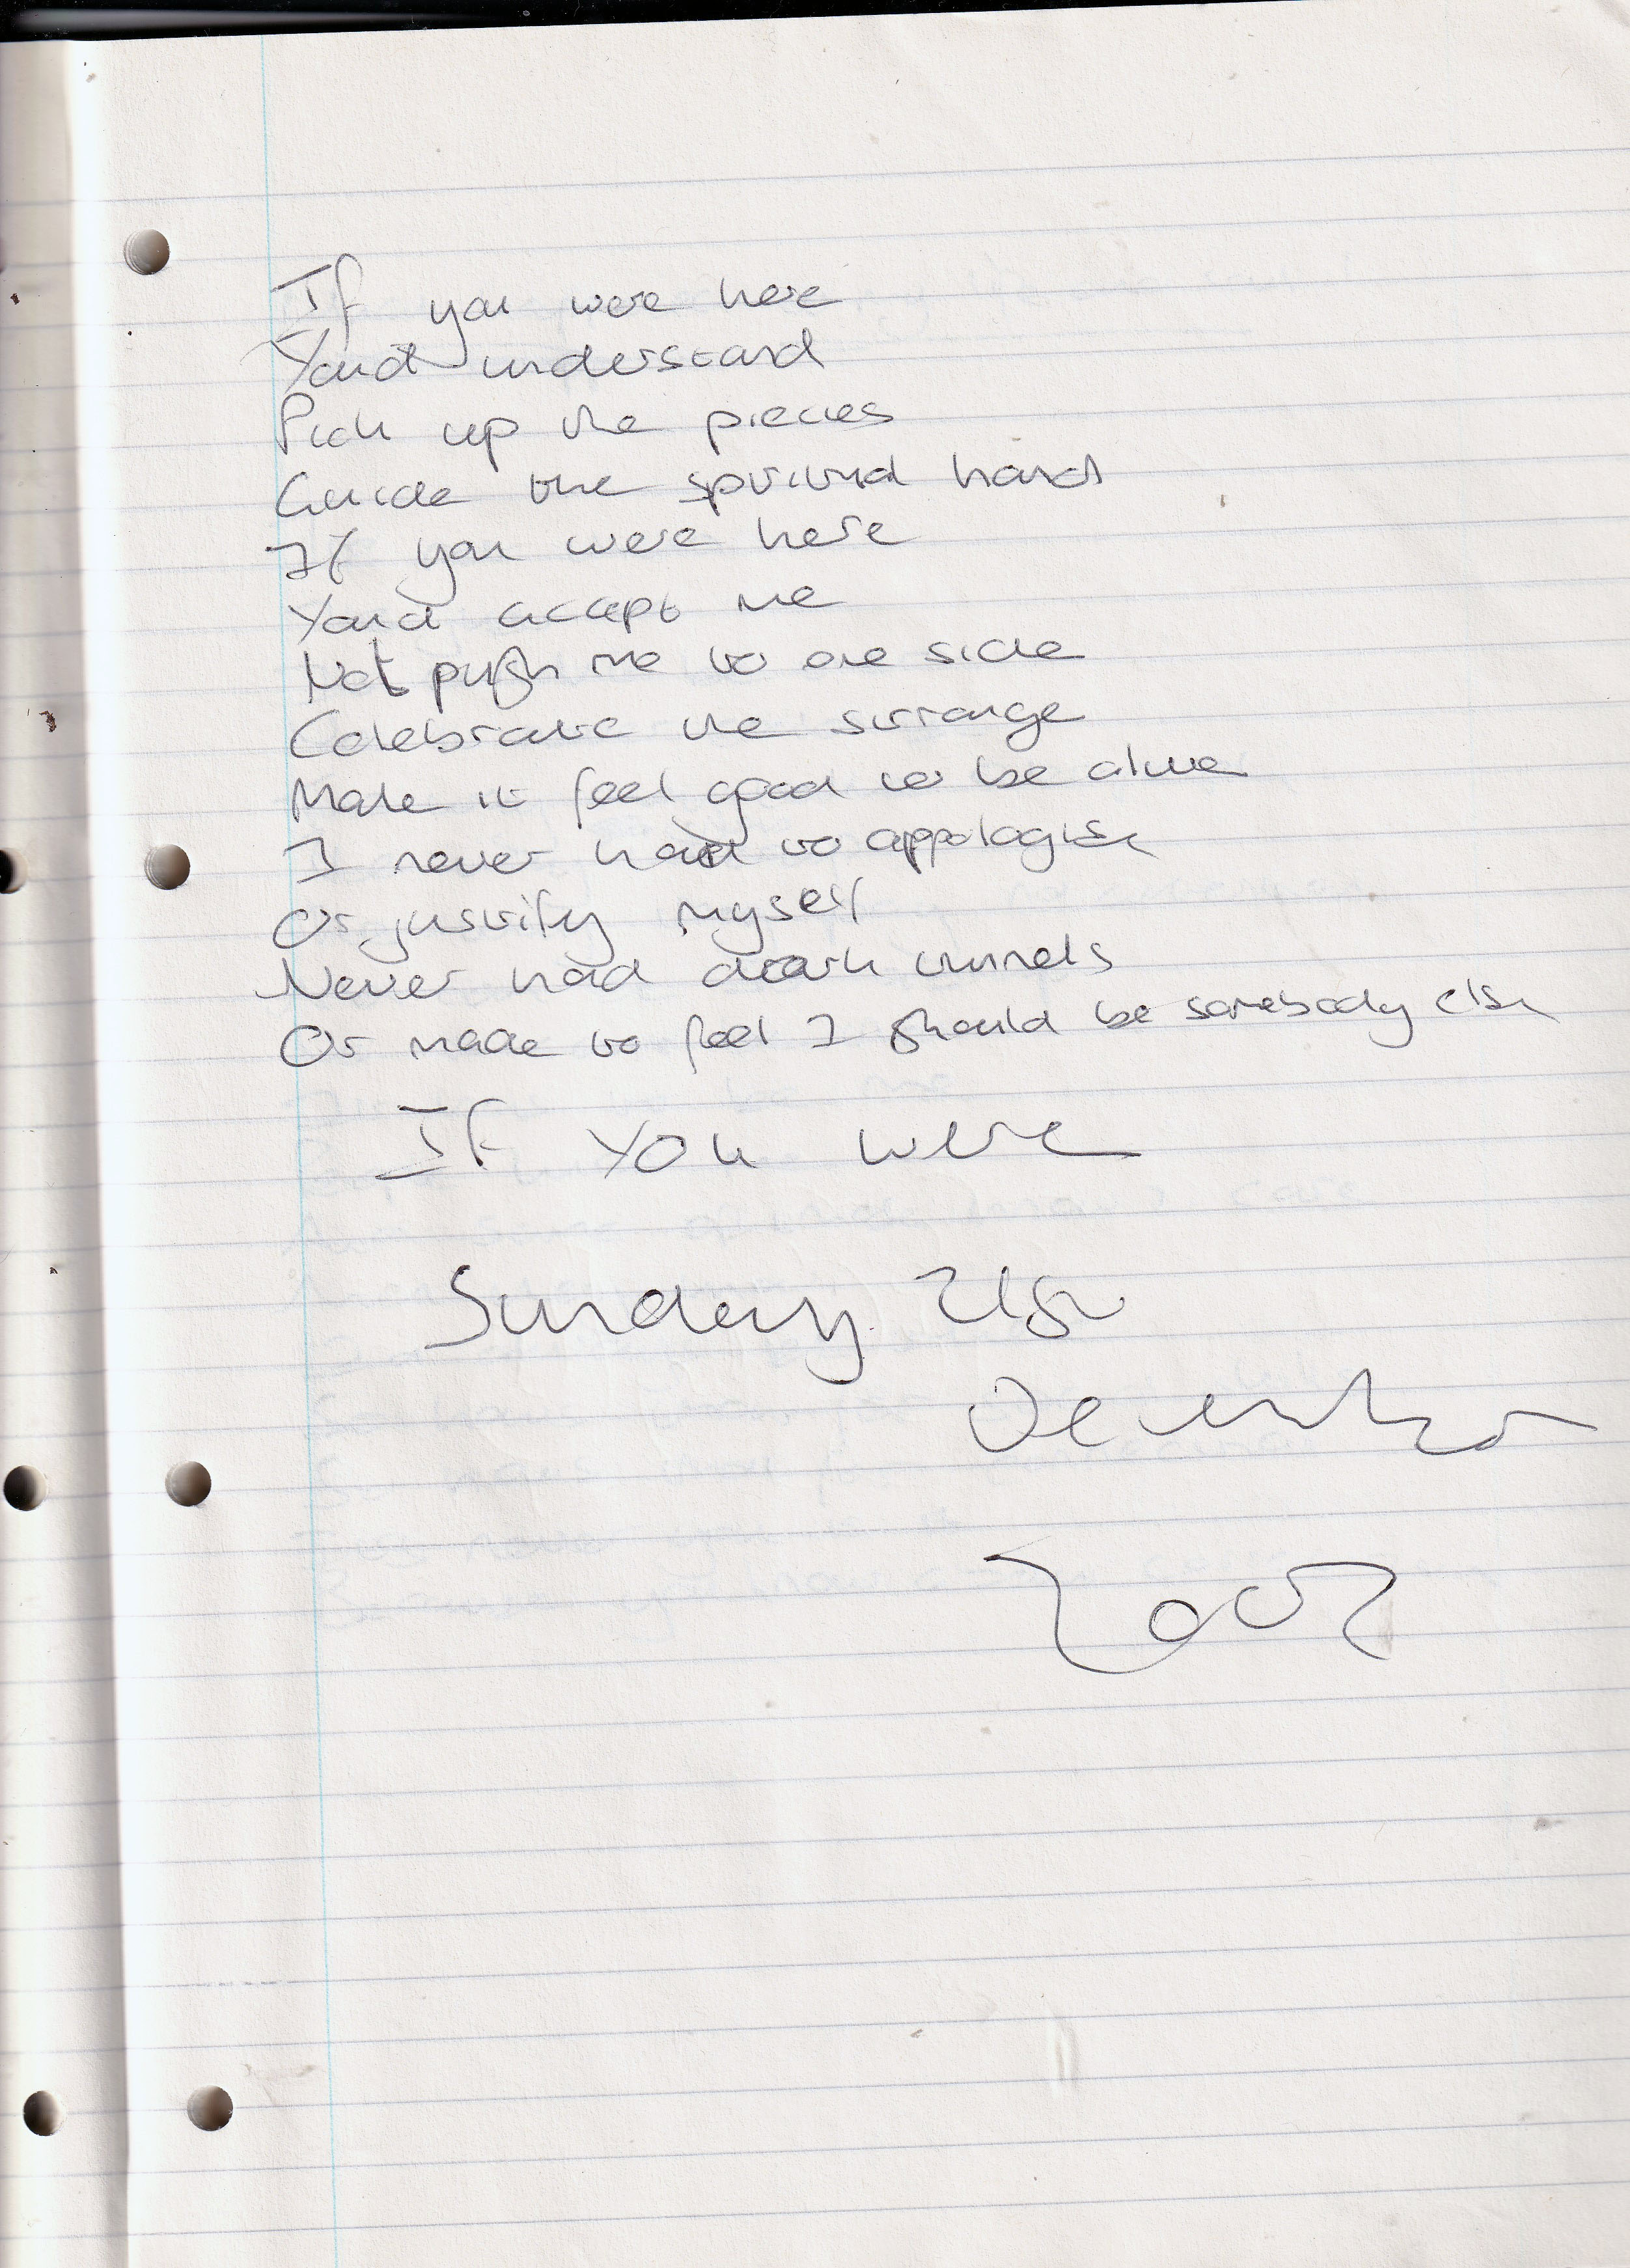 If you were here
You'd understand
Pick up the pieces
Guide the spiritual hand
If you were here
You'd accept me
Not push me to one side
Celebrate the strange
Make it feel good to be alive
I never had to appologise
Or justify myself
Never had dark tunnels
Or made to feel I should be somebody else
If you were
Sunday 21st
December